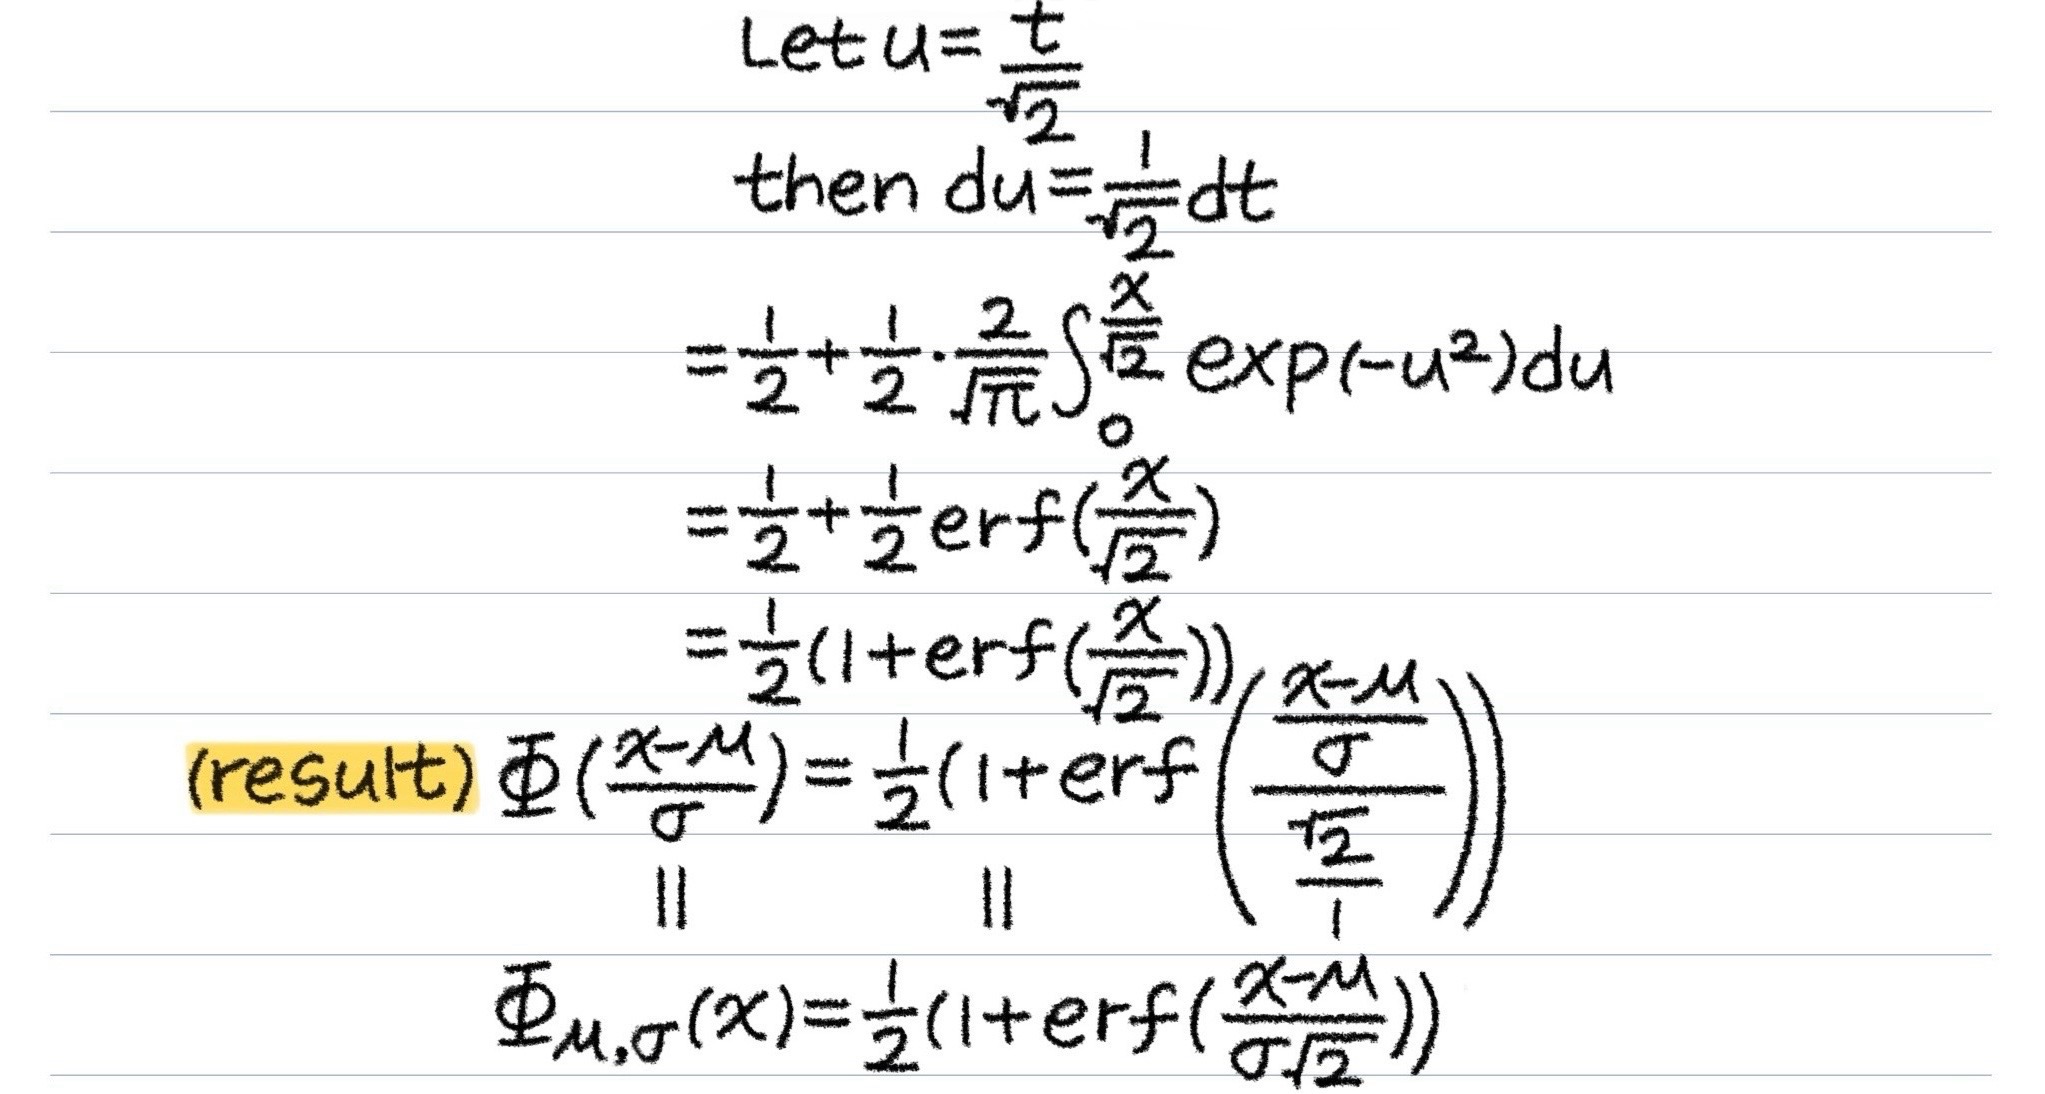 Let u = t/√2
then du = 1/√2 dt
= 1/2 + 1/2 · 2/√π ∫₀^(x/√2) exp(-u²)du
= 1/2 + 1/2 erf(x/√2)
= 1/2 (1 + erf(x/√2))
(result) Φ((x-μ)/σ) = 1/2 (1 + erf(((x-μ)/σ)/(√2/1)))
|| ||
Φμ,σ(x) = 1/2 (1 + erf((x-μ)/(σ√2)))